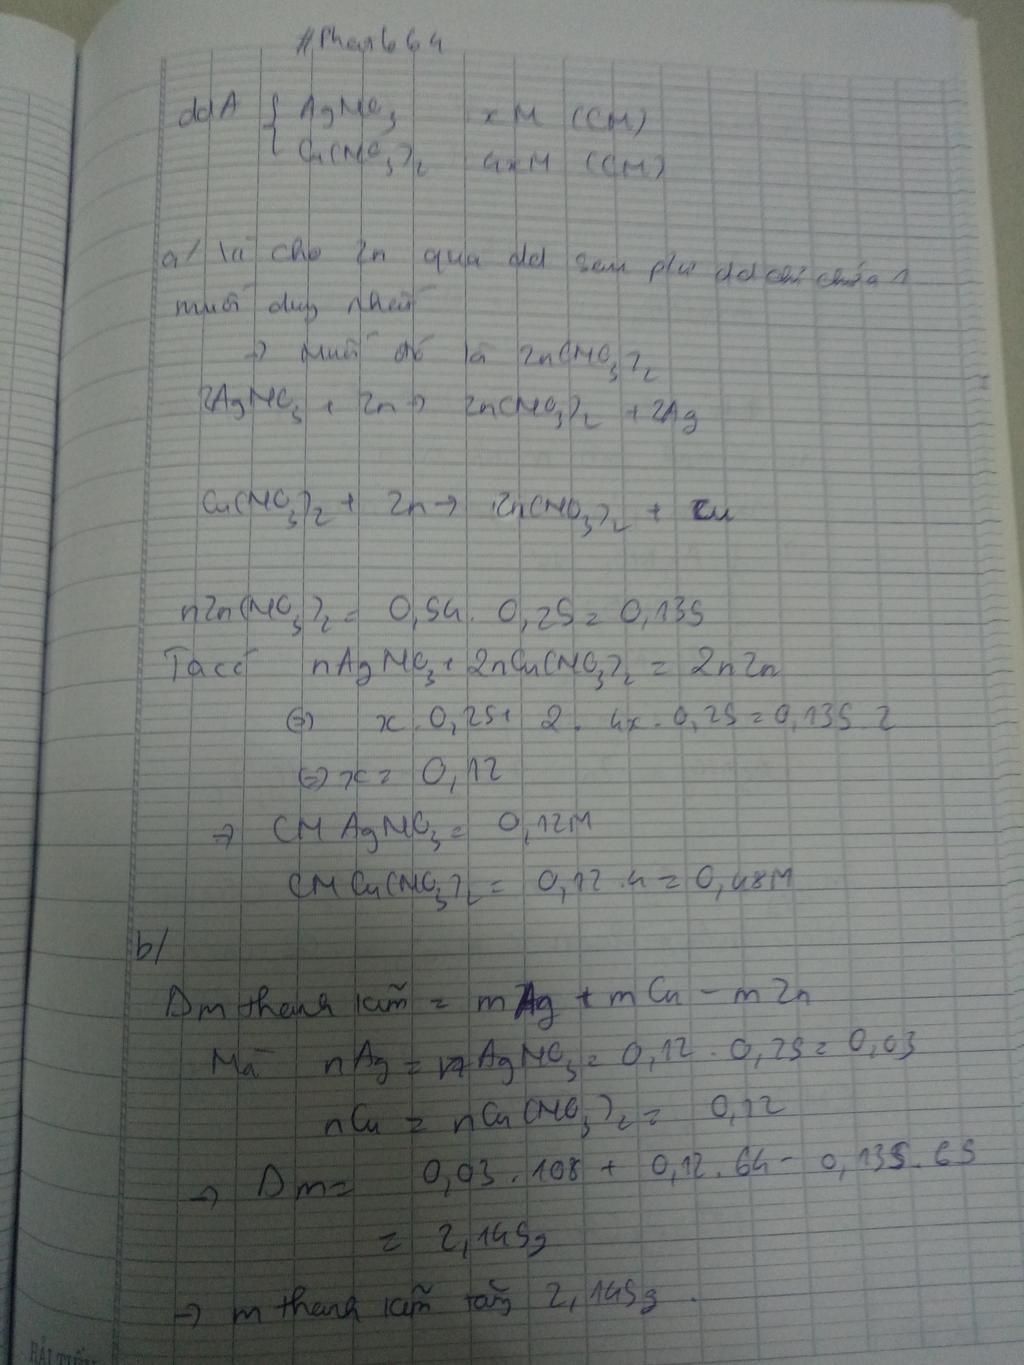 #Phan664
ddA { AgNO3 xM (CM)
Cu(NO3)2 4xM (CM)
a/ Vì cho Zn qua dd sau pứ dd chỉ chứa 1
muối duy nhất
→ Muối đó là Zn(NO3)2
2AgNO3 + Zn → Zn(NO3)2 + 2Ag
Cu(NO3)2 + Zn → Zn(NO3)2 + Cu
nZn(NO3)2 = 0,54. 0,25 = 0,135
Ta có nAgNO3 + 2nCu(NO3)2 = 2nZn
(=) x. 0,25 + 2. 4x. 0,25 = 0,135 2
(=) x = 0,12
⇒ CM AgNO3 = 0,12M
CM Cu(NO3)2 = 0,12.4 = 0,48M
b/
Dm thanh kẽm = mAg + mCu - mZn
Mà nAg = nAgNO3 = 0,12. 0,25 = 0,03
nCu = nCu(NO3)2 = 0,12
→ Dm = 0,03. 108 + 0,12. 64 - 0,135. 65
= 2,145g
→ m thanh kẽm tăng 2,145g.